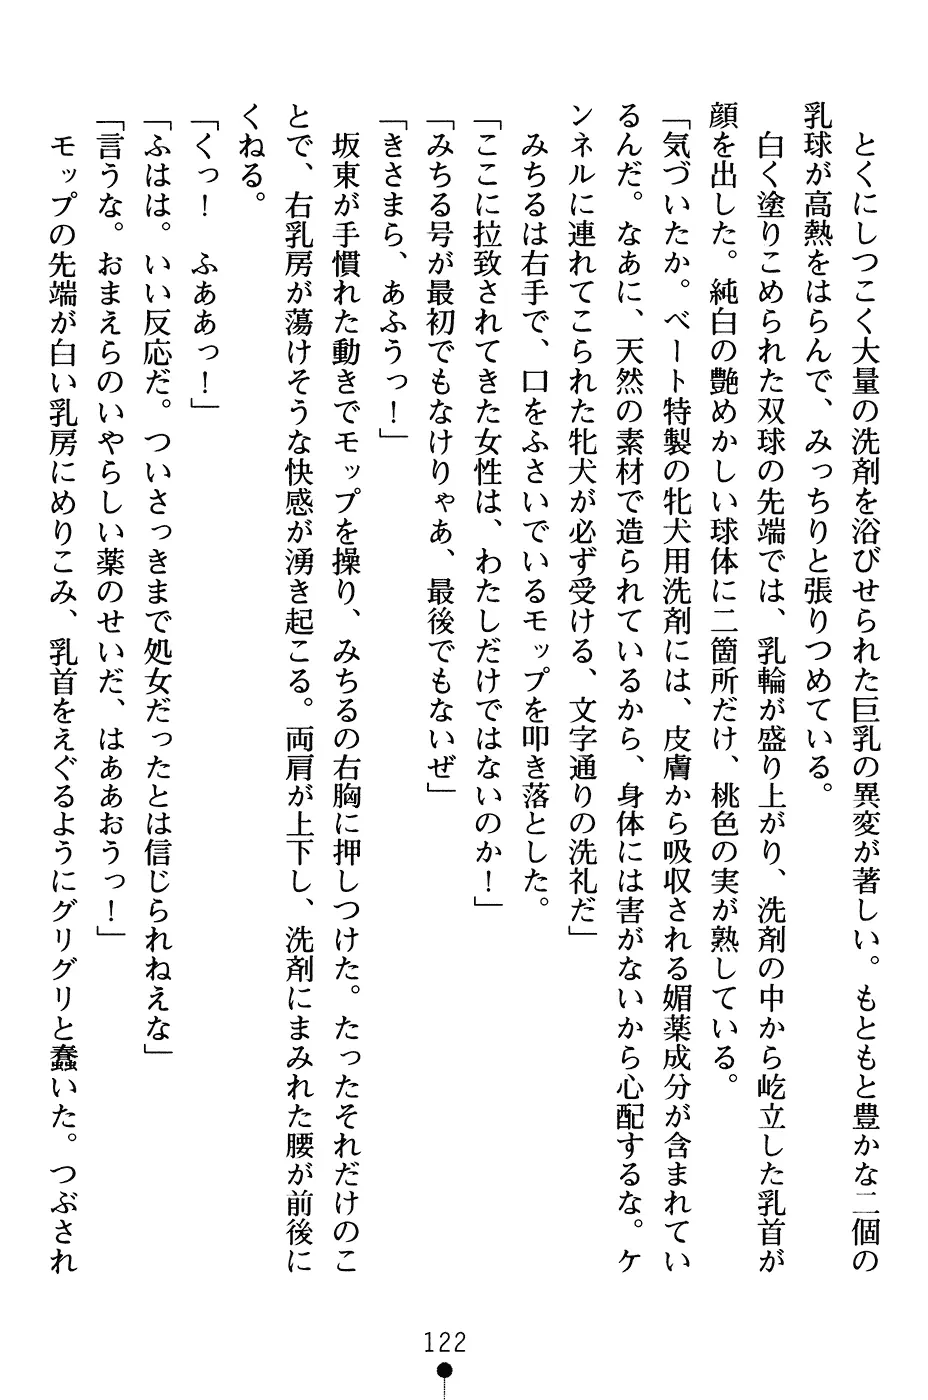 とくにしつこく大量の洗剤を浴びせられた巨乳の異変が著しい。もともと豊かな二個の
乳球が高熱をはらんで、みっちりと張りつめている。
白く塗りこめられた双球の先端では、乳輪が盛り上がり、洗剤の中から屹立した乳首が
顔を出した。純白の艶めかしい球体に二箇所だけ、桃色の実が熟している。
「気づいたか。ベート特製の牝犬用洗剤には、皮膚から吸収される媚薬成分が含まれてい
るんだ。なあに、天然の素材で造られているから、身体には害がないから心配するな。ケ
ンネルに連れてこられた牝犬が必ず受ける、文字通りの洗礼だ」
みちるは右手で、口をふさいでいるモップを叩き落とした。
「ここに拉致されてきた女性は、わたしだけではないのか！」
「みちる号が最初でもなけりゃあ、最後でもないぜ」
「きさまら、あふうっ！」
坂東が手慣れた動きでモップを操り、みちるの右胸に押しつけた。たったそれだけのこ
とで、右乳房が蕩けそうな快感が湧き起こる。両肩が上下し、洗剤にまみれた腰が前後に
くねる。
「くっ！　ふああっ！」
「ふはは。いい反応だ。ついさっきまで処女だったとは信じられねえな」
「言うな。おまえらのいやらしい薬のせいだ、はああおうっ！」
モップの先端が白い乳房にめりこみ、乳首をえぐるようにグリグリと蠢いた。つぶされ
122